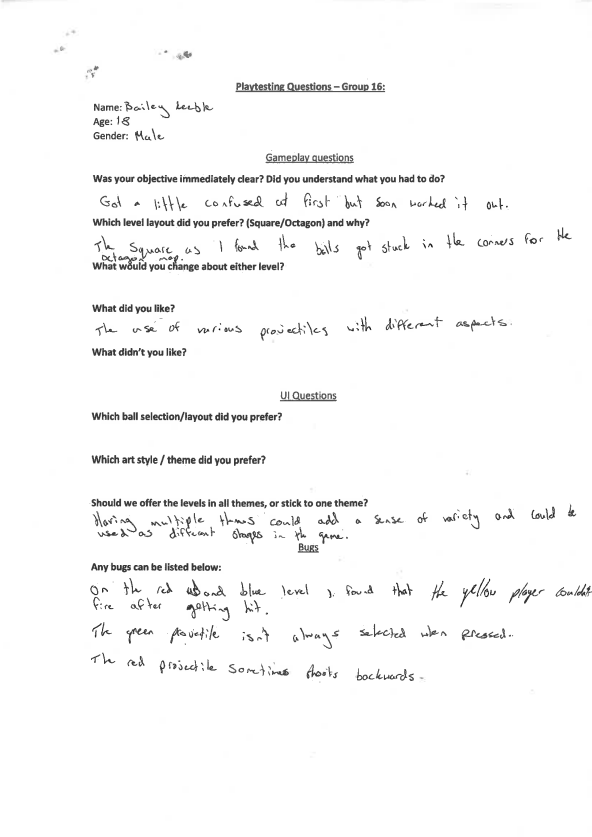 Playtesting Questions – Group 16:
Name: Bailey
Age: 18
Gender: Male
Gameplay questions
Was your objective immediately clear? Did you understand what you had to do?
Got a little confused at first but soon worked it out.
Which level layout did you prefer? (Square/Octagon) and why?
The Square as I found the balls got stuck in the corners for the
octagon map.
What would you change about either level?
What did you like?
The use of various projectiles with different aspects.
What didn't you like?
UI Questions
Which ball selection/layout did you prefer?
Which art style / theme did you prefer?
Should we offer the levels in all themes, or stick to one theme?
Having multiple themes could add a sense of variety and could be
used as different stages in the game.
Bugs
Any bugs can be listed below:
On the red and blue level I found that the yellow player couldn't
fire after getting hit.
The green projectile isn't always selected when pressed.
The red projectile sometimes shoots backwards.